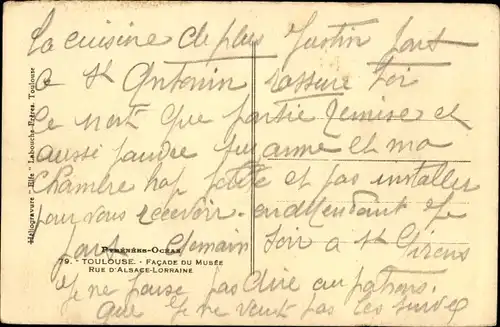 La cuisine de plus Justin part
a St Antonin rassure toi
ce n'est que partie remise et
aussi faudra Suzanne et ma
chambre trop petite et pas installer
pour vous recevoir. en attendant je
pars demain soir a St Girons
PYRÉNÉES-OCÉAN
79. - TOULOUSE. - FAÇADE DU MUSÉE
RUE D'ALSACE-LORRAINE
Je ne pense pas dire au patrons.
que je ne veut pas les
Héliogravure "Elfe" Labouche Frères, Toulouse